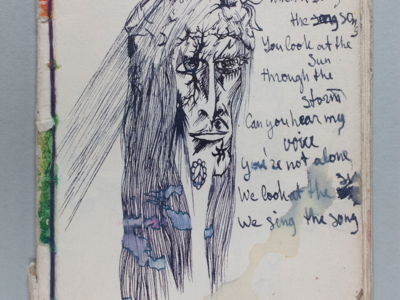 the song
You look at the
Sun
through the
Storm
Can you hear my
voice
You're not alone,
We look at the
We sing the song